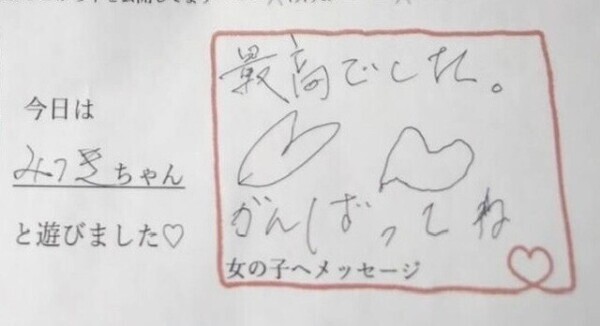 今日は
みづきちゃん
と遊びました♡
最高でした。
がんばってね
女の子へメッセージ